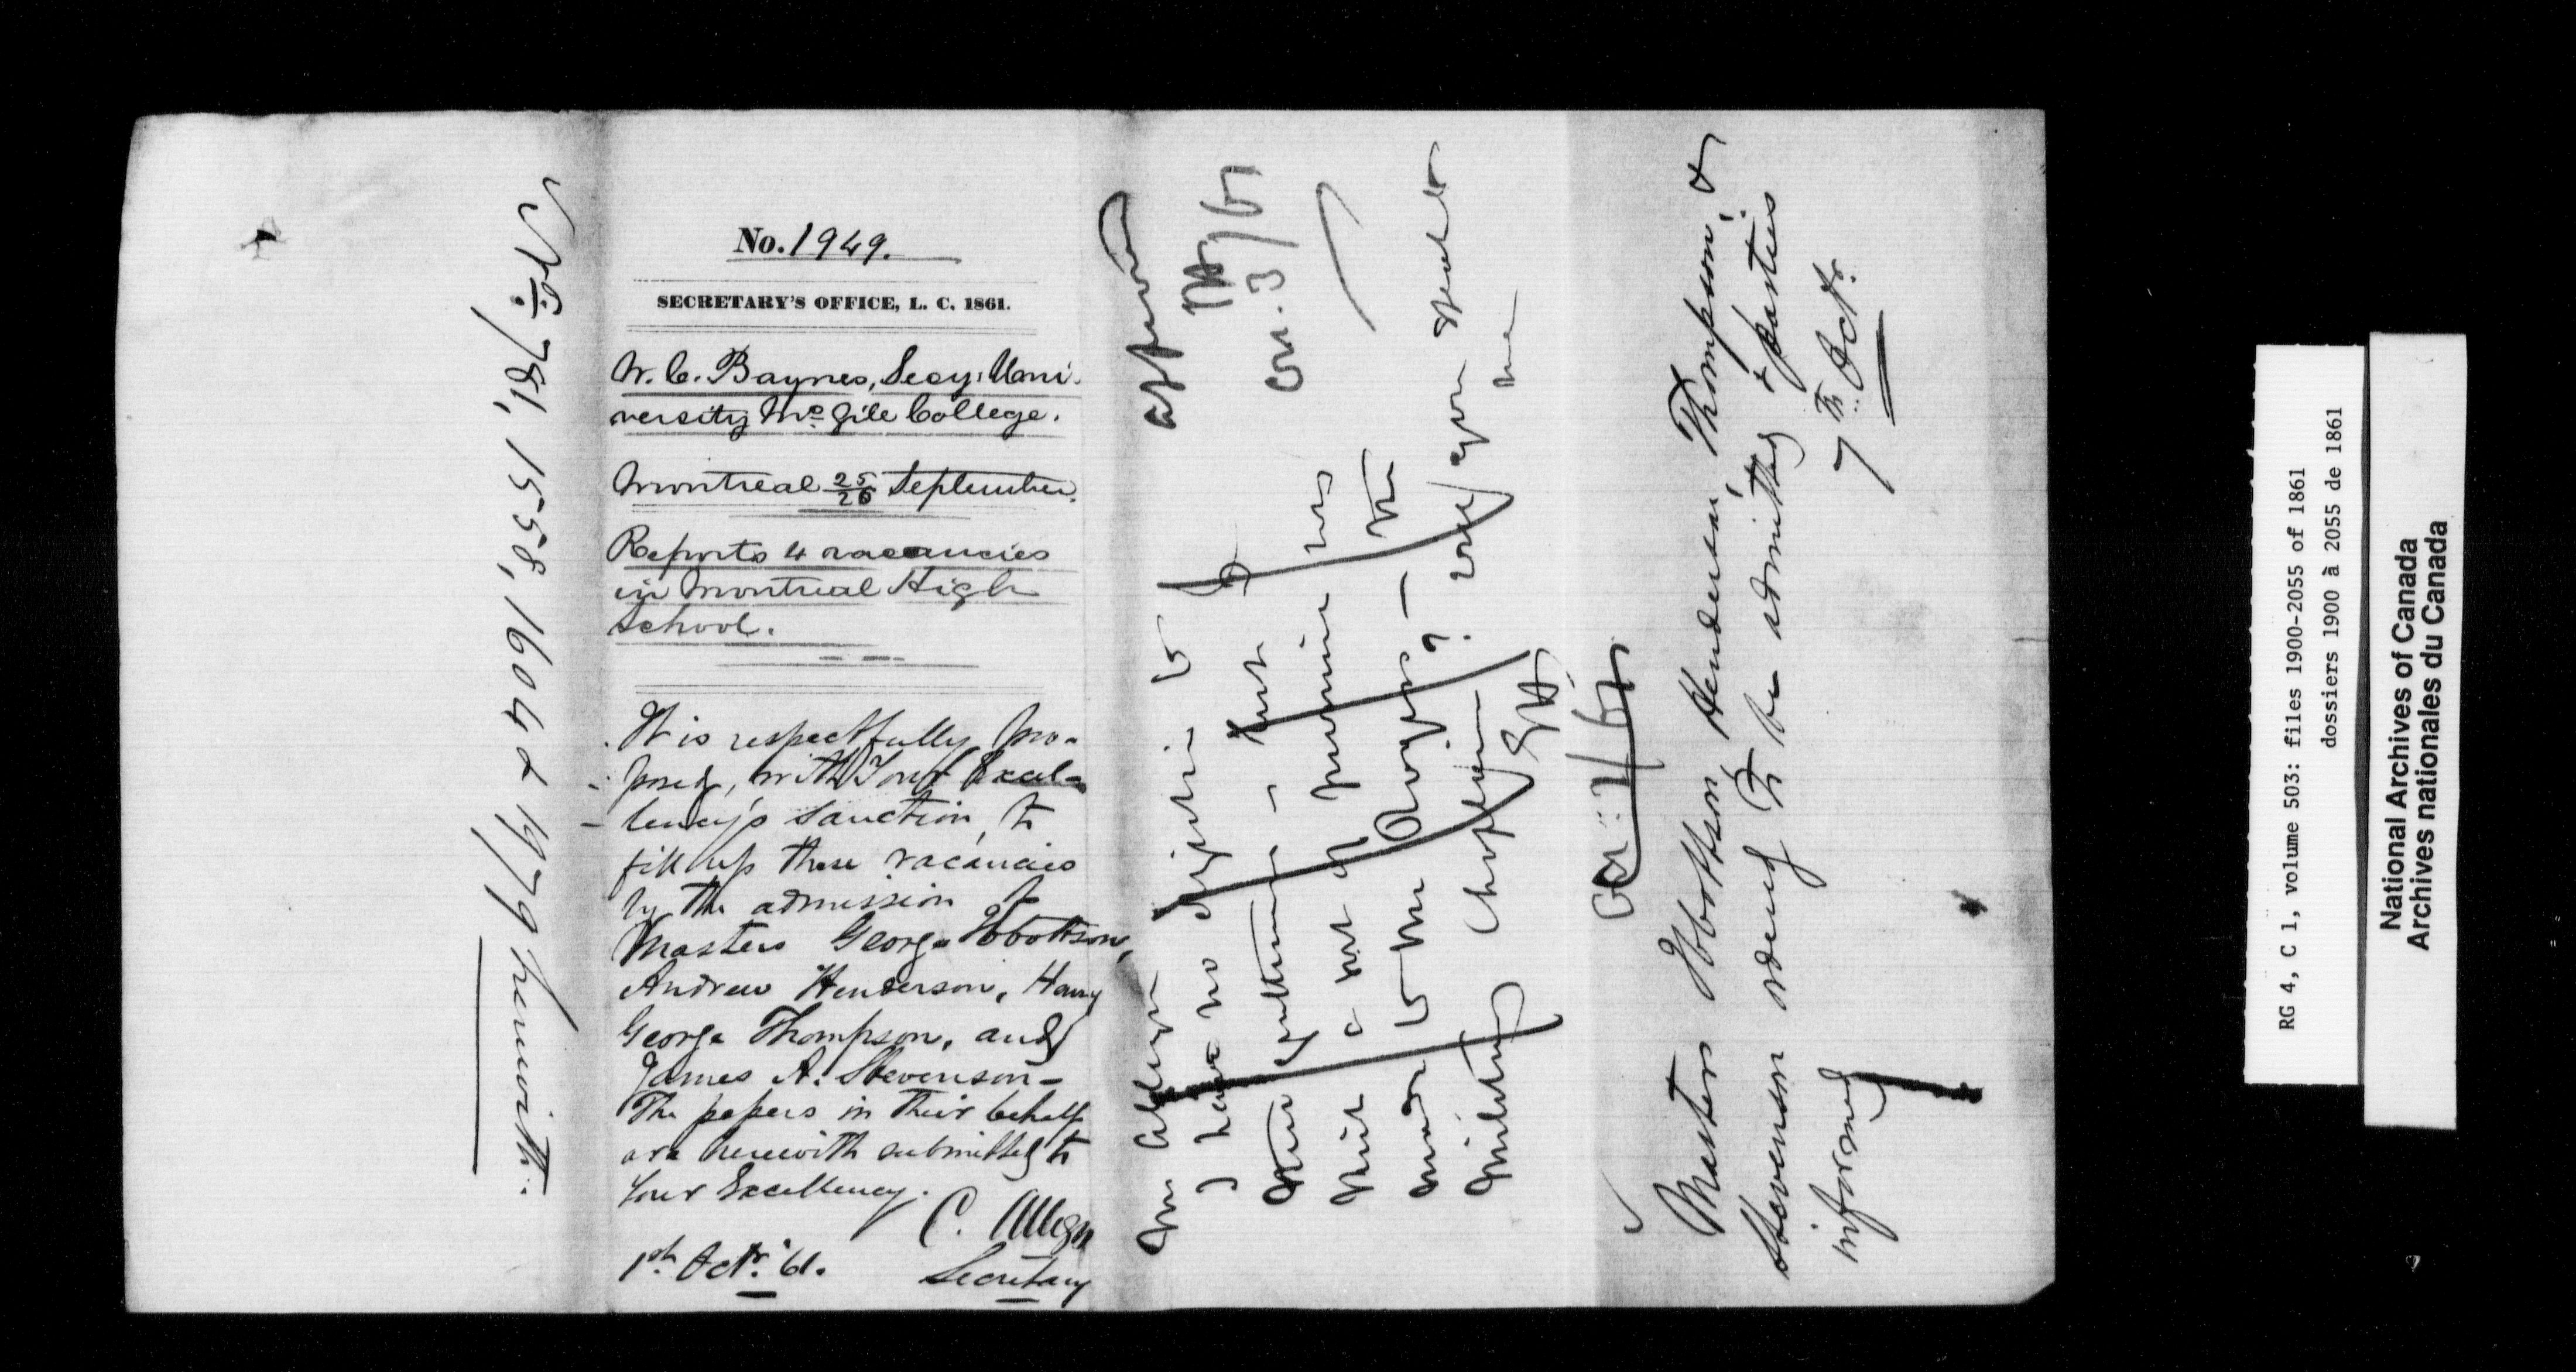 Nos. 781, 1558, 1604 & 1979 herewith.
No. 1949.
SECRETARY'S OFFICE, L. C. 1861.
W. C. Baynes, Secy: Uni-
versity Mc Gill College.
Montreal 25/26 September.
Reports 4 vacancies
in Montreal High
School.
It is respectfully pro-
posed, with Your Excel-
lency's sanction, to
fill up these vacancies
by the admission of
Masters George Ibbottson,
Andrew Henderson, Harry
George Thompson, and
James A. Stevenson -
The papers in their behalf
are herewith submitted to
Your Excellency.
C. Alleyn
Secretary
1st Octr. 61.
approved
Oct. 3/61
Mr Alleyn
I have no objection to
these gentlemen - but
is not
to Mr
Military Chaplain
me
Oct. 1/61
Masters Ibbottson Henderson, Thompson, &
Stevenson ordered to be admitted & parties
informed 7th Octr.
RG 4, C 1, volume 503: files 1900-2055 of 1861
dossiers 1900 à 2055 de 1861
National Archives of Canada
Archives nationales du Canada